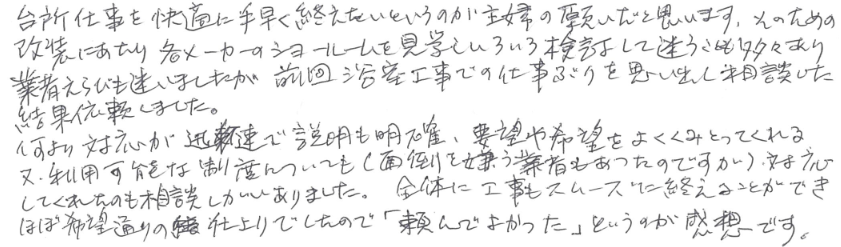 台所仕事を快適に手早く終えたいというのが主婦の願いだと思います。そのための
改装にあたり各メーカーのショールームを見学しいろいろ検討して迷うも多々あり
業者えらびも迷いましたが前回浴室工事での仕事ぶりを思い出し相談した
結果依頼しました。
何より対応が迅速で説明も明確、要望や希望をよくくみとってくれる
又、利用可能な制度についても(面倒を嫌う業者もあったのですが)対応
してくれたのも相談しがいありました。全体に工事もスムーズに終えることができ
ほぼ希望通りの仕上りでしたので「頼んでよかった」というのが感想です。